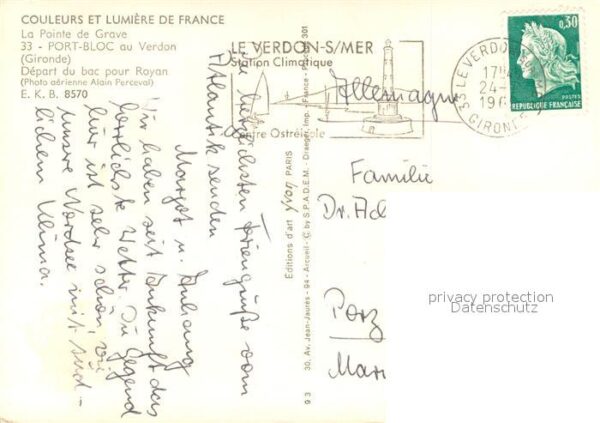 COULEURS ET LUMIÈRE DE FRANCE
La Pointe de Grave
33 - PORT-BLOC au Verdon
(Gironde)
Départ du bac pour Royan
(Photo aérienne Alain Perceval)
E. K. B. 8570
LE VERDON-S/MER
Station Climatique
Centre Ostréicole
LE VERDON
17H
24-
196
GIRONDE
0,30
POSTES
REPUBLIQUE FRANÇAISE
Allemagne
Familie
Dr.
Porz
Die herzlichsten Feriengrüße vom
Atlantik senden
Margot u.
Wir haben seit Ankunft das
herrlichste Wetter. Die Gegend
hier ist sehr schön, wie
unsere Nordsee mit süd-
lichem Klima.
Editions d'art yvon PARIS
30, Av. Jean-Jaurès - 94 - Arcueil - © by S.P.A.D.E.M. - Draeger, Imp. - France - 301
9 3
privacy protection
Datenschutz